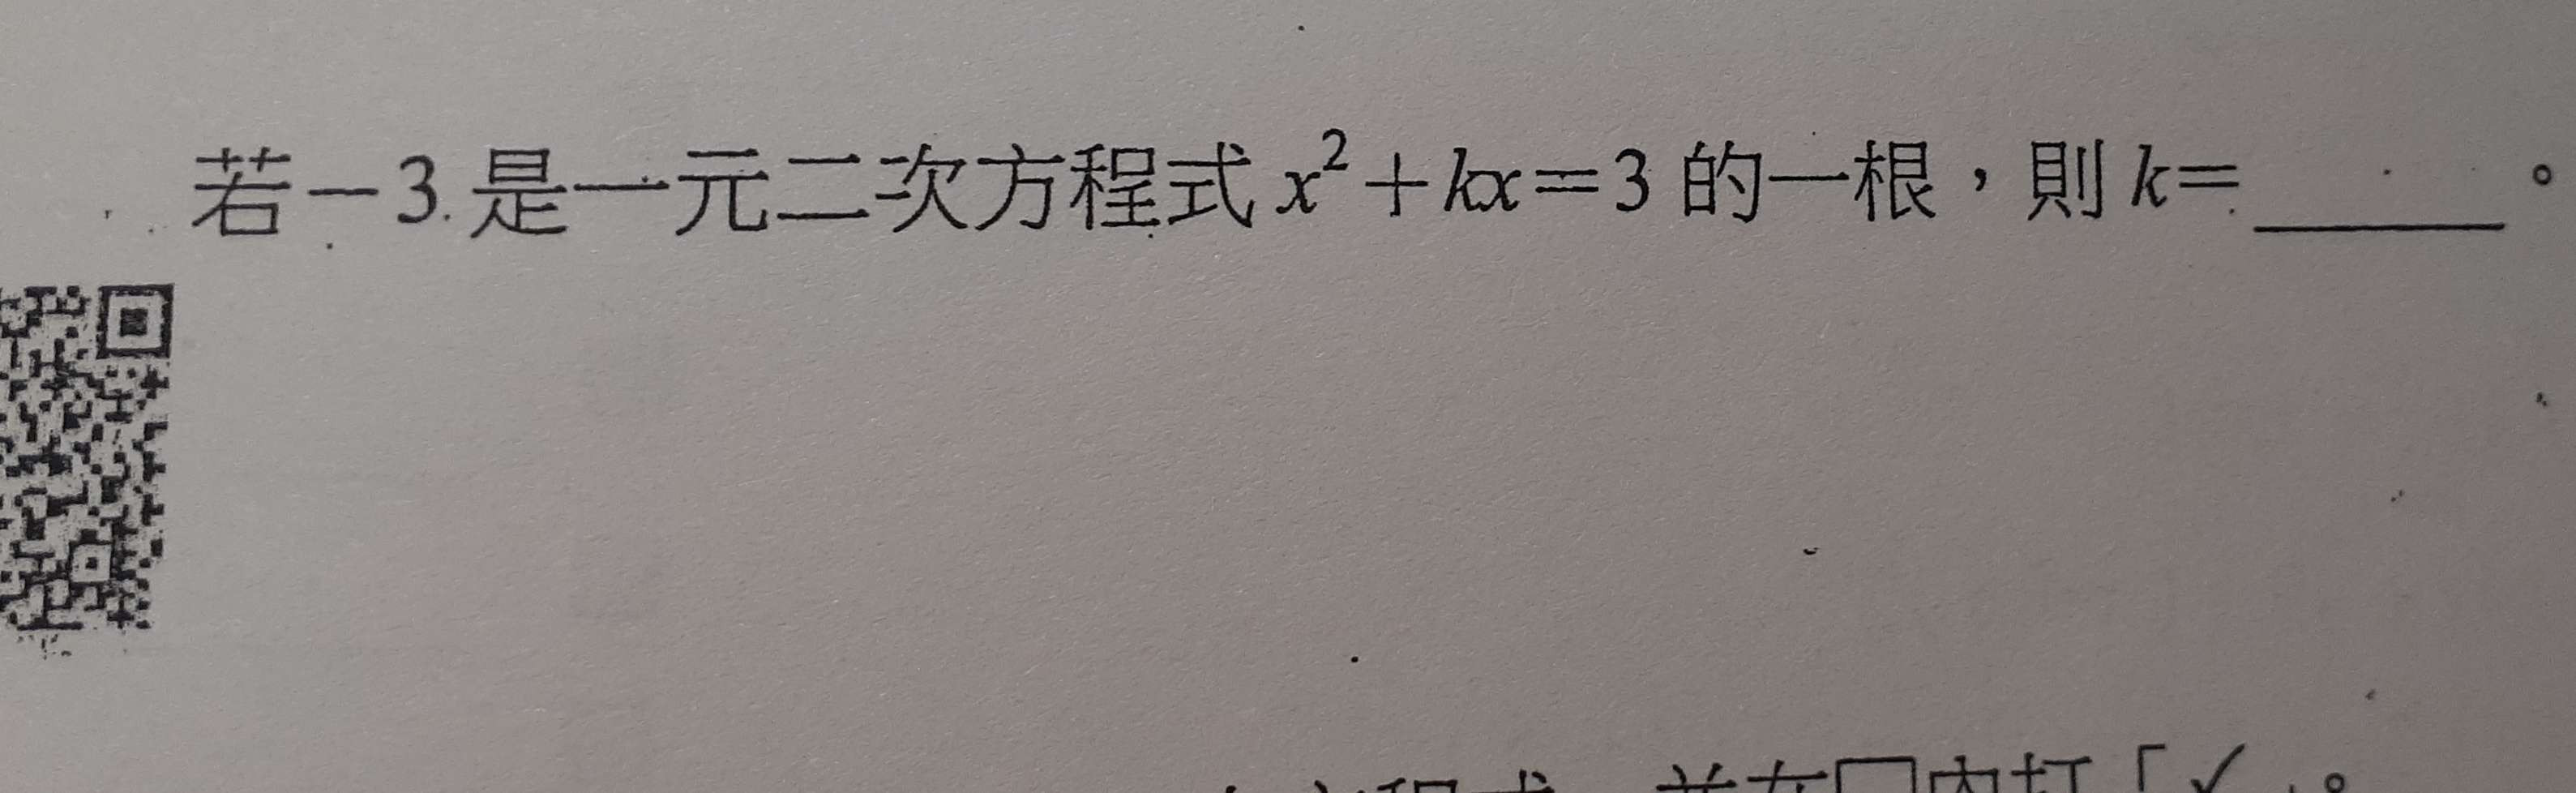 若-3是一元二次方程式 x²+kx=3 的一根，則 k=______。
並在□內打「✓」。